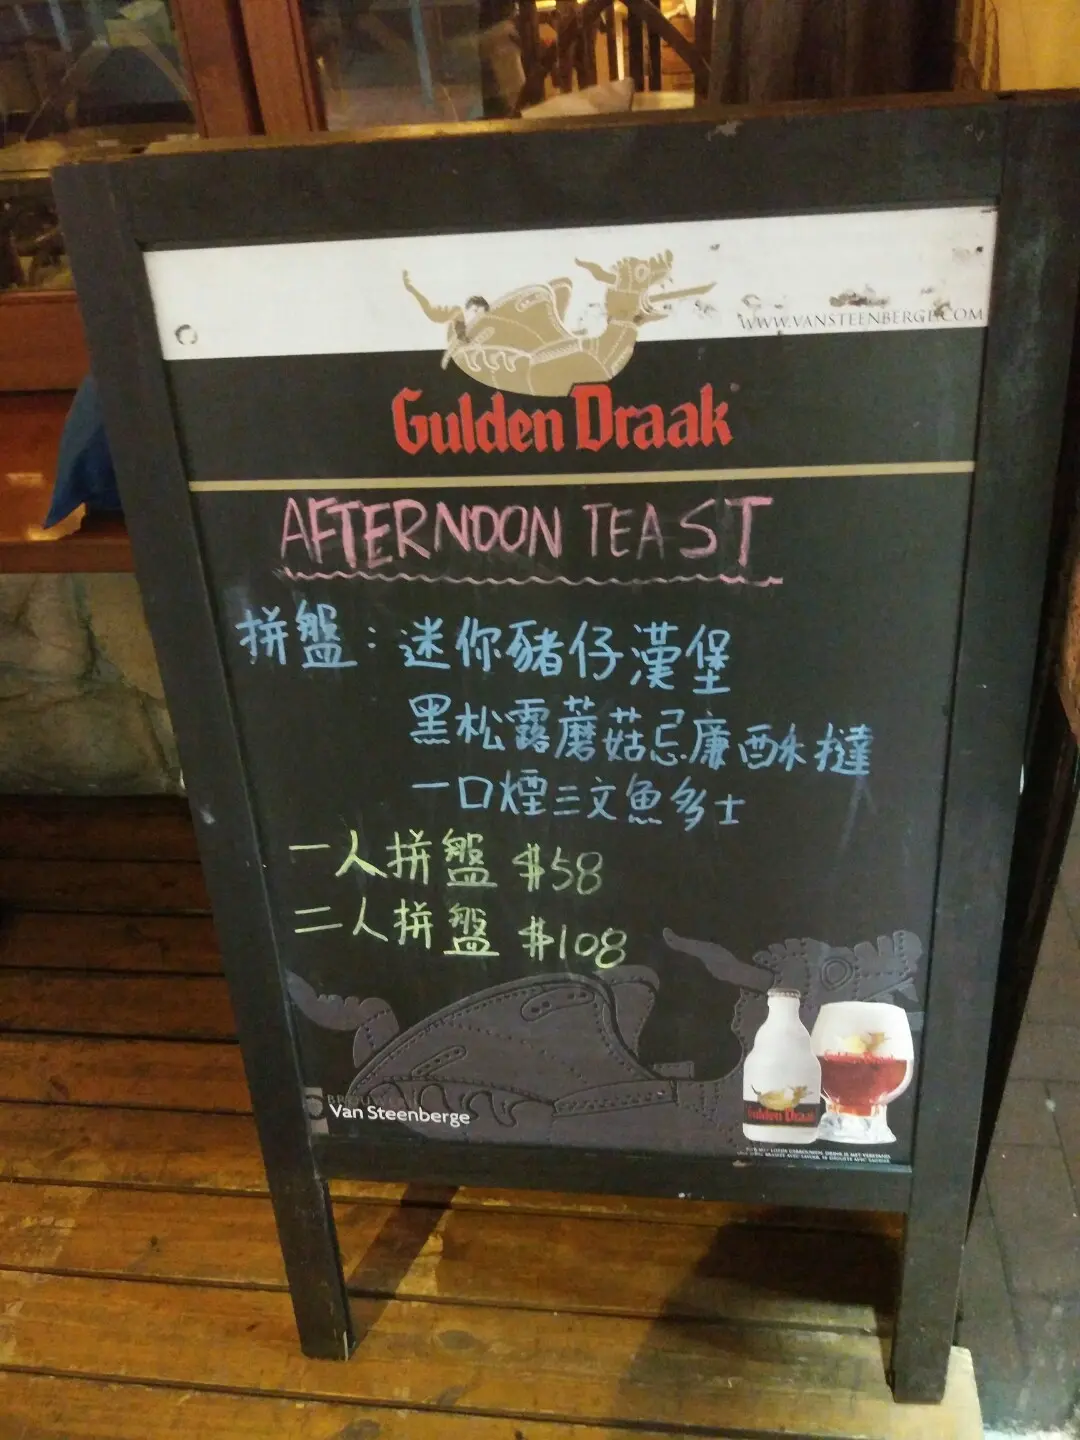 WWW.VANSTEENBERGE.COM
Gulden Draak
AFTERNOON TEA ST
拼盤：迷你豬仔漢堡
黑松露蘑菇忌廉酥撻
一口煙三文魚多士
一人拼盤 $58
二人拼盤 $108
Van Steenberge
Gulden Draak